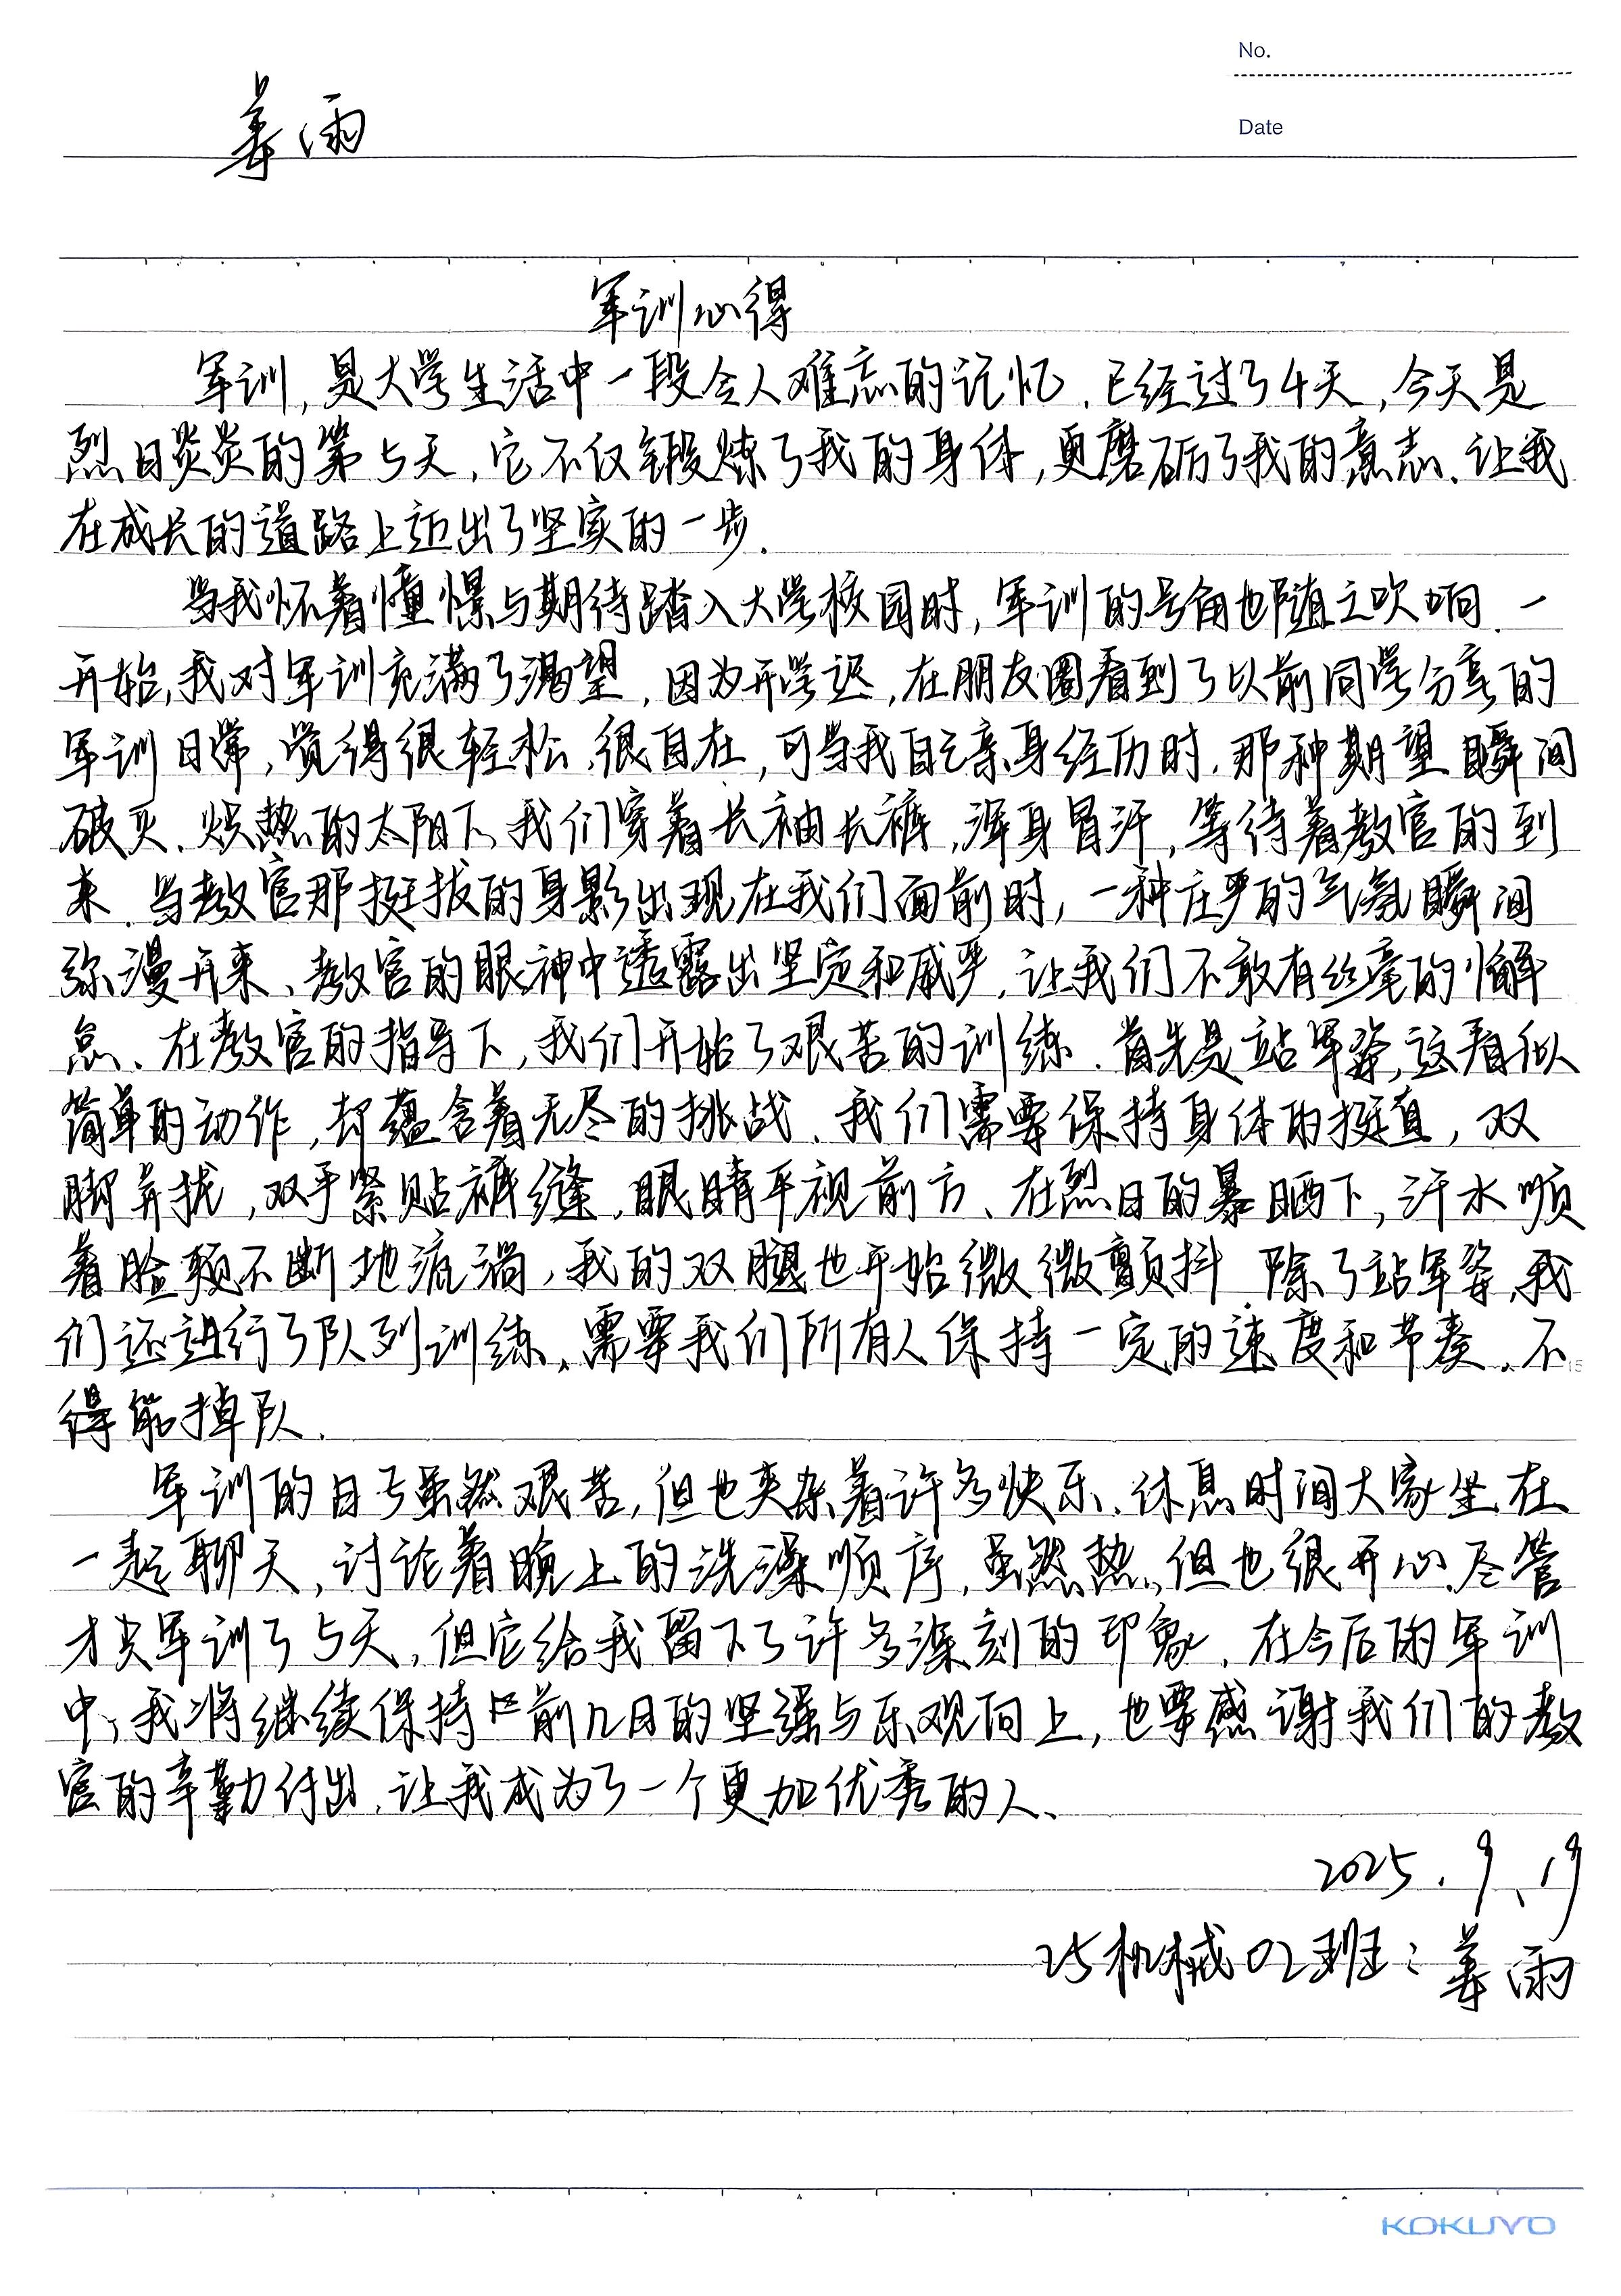 No.
Date
姜雨
军训心得
军训,是大学生活中一段令人难忘的记忆.已经过了4天,今天是
烈日炎炎的第5天,它不仅锻炼了我的身体,更磨砺了我的意志.让我
在成长的道路上迈出了坚实的一步.
当我怀着憧憬与期待踏入大学校园时,军训的号角也随之吹响.一
开始,我对军训充满了渴望,因为开学迟,在朋友圈看到了以前同学分享的
军训日常,觉得很轻松.很自在,可当我自己亲身经历时.那种期望瞬间
破灭.炽热的太阳下,我们穿着长袖长裤,浑身冒汗,等待着教官的到
来.当教官那挺拔的身影出现在我们面前时,一种庄严的气氛瞬间
弥漫开来、教官的眼神中透露出坚定和威严.让我们不敢有丝毫的懈
怠、在教官的指导下,我们开始了艰苦的训练.首先是站军姿,这看似
简单的动作,却蕴含着无尽的挑战.我们需要保持身体的挺直,双
脚并拢,双手紧贴裤缝,眼睛平视前方、在烈日的暴晒下,汗水顺
着脸颊不断地流淌,我的双腿也开始微微颤抖.除了站军姿,我
们还进行了队列训练、需要我们所有人保持一定的速度和节奏.不
得能掉队.
军训的日子虽然艰苦,但也夹杂着许多快乐.休息时间大家坐在
一起聊天,讨论着晚上的洗澡顺序,虽然热,但也很开心.尽管
才只军训了5天,但它给我留下了许多深刻的印象.在今后的军训
中,我将继续保持前几日的坚强与乐观向上,也要感谢我们的教
官的辛勤付出.让我成为了一个更加优秀的人、
2025.9.19
25机械02班:姜雨
15
KOKUYO